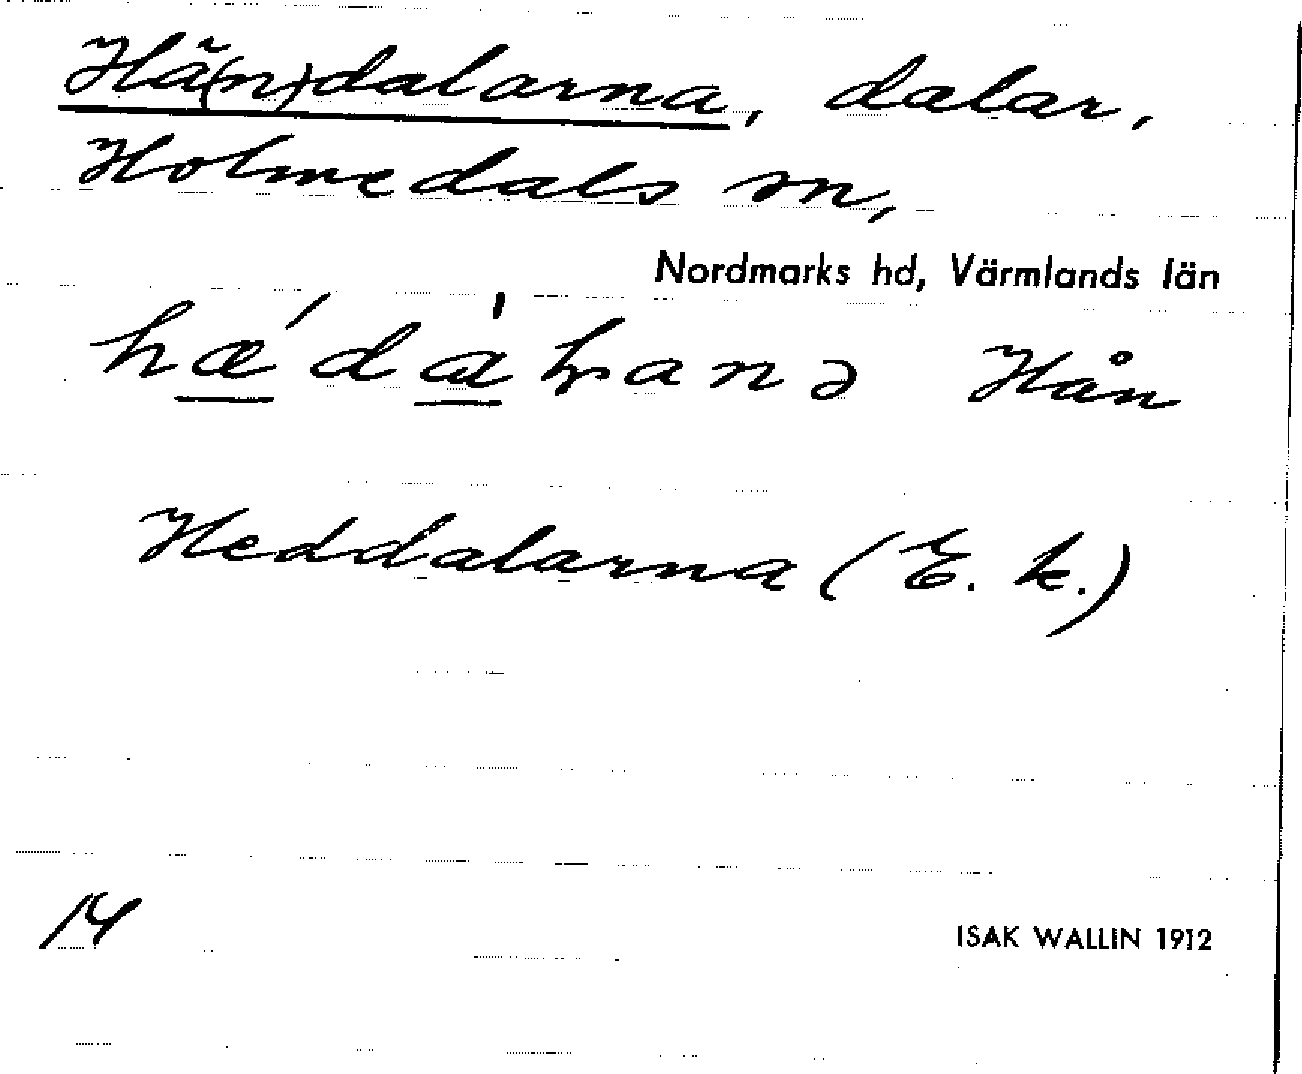 Hä(n)dalarna, dalar,
Holmedals sn,
Nordmarks hd, Värmlands län
hæ´dɑ̀ƚ̣anə Hån
Heddalarna (E. k.)
14
ISAK WALLIN 1912